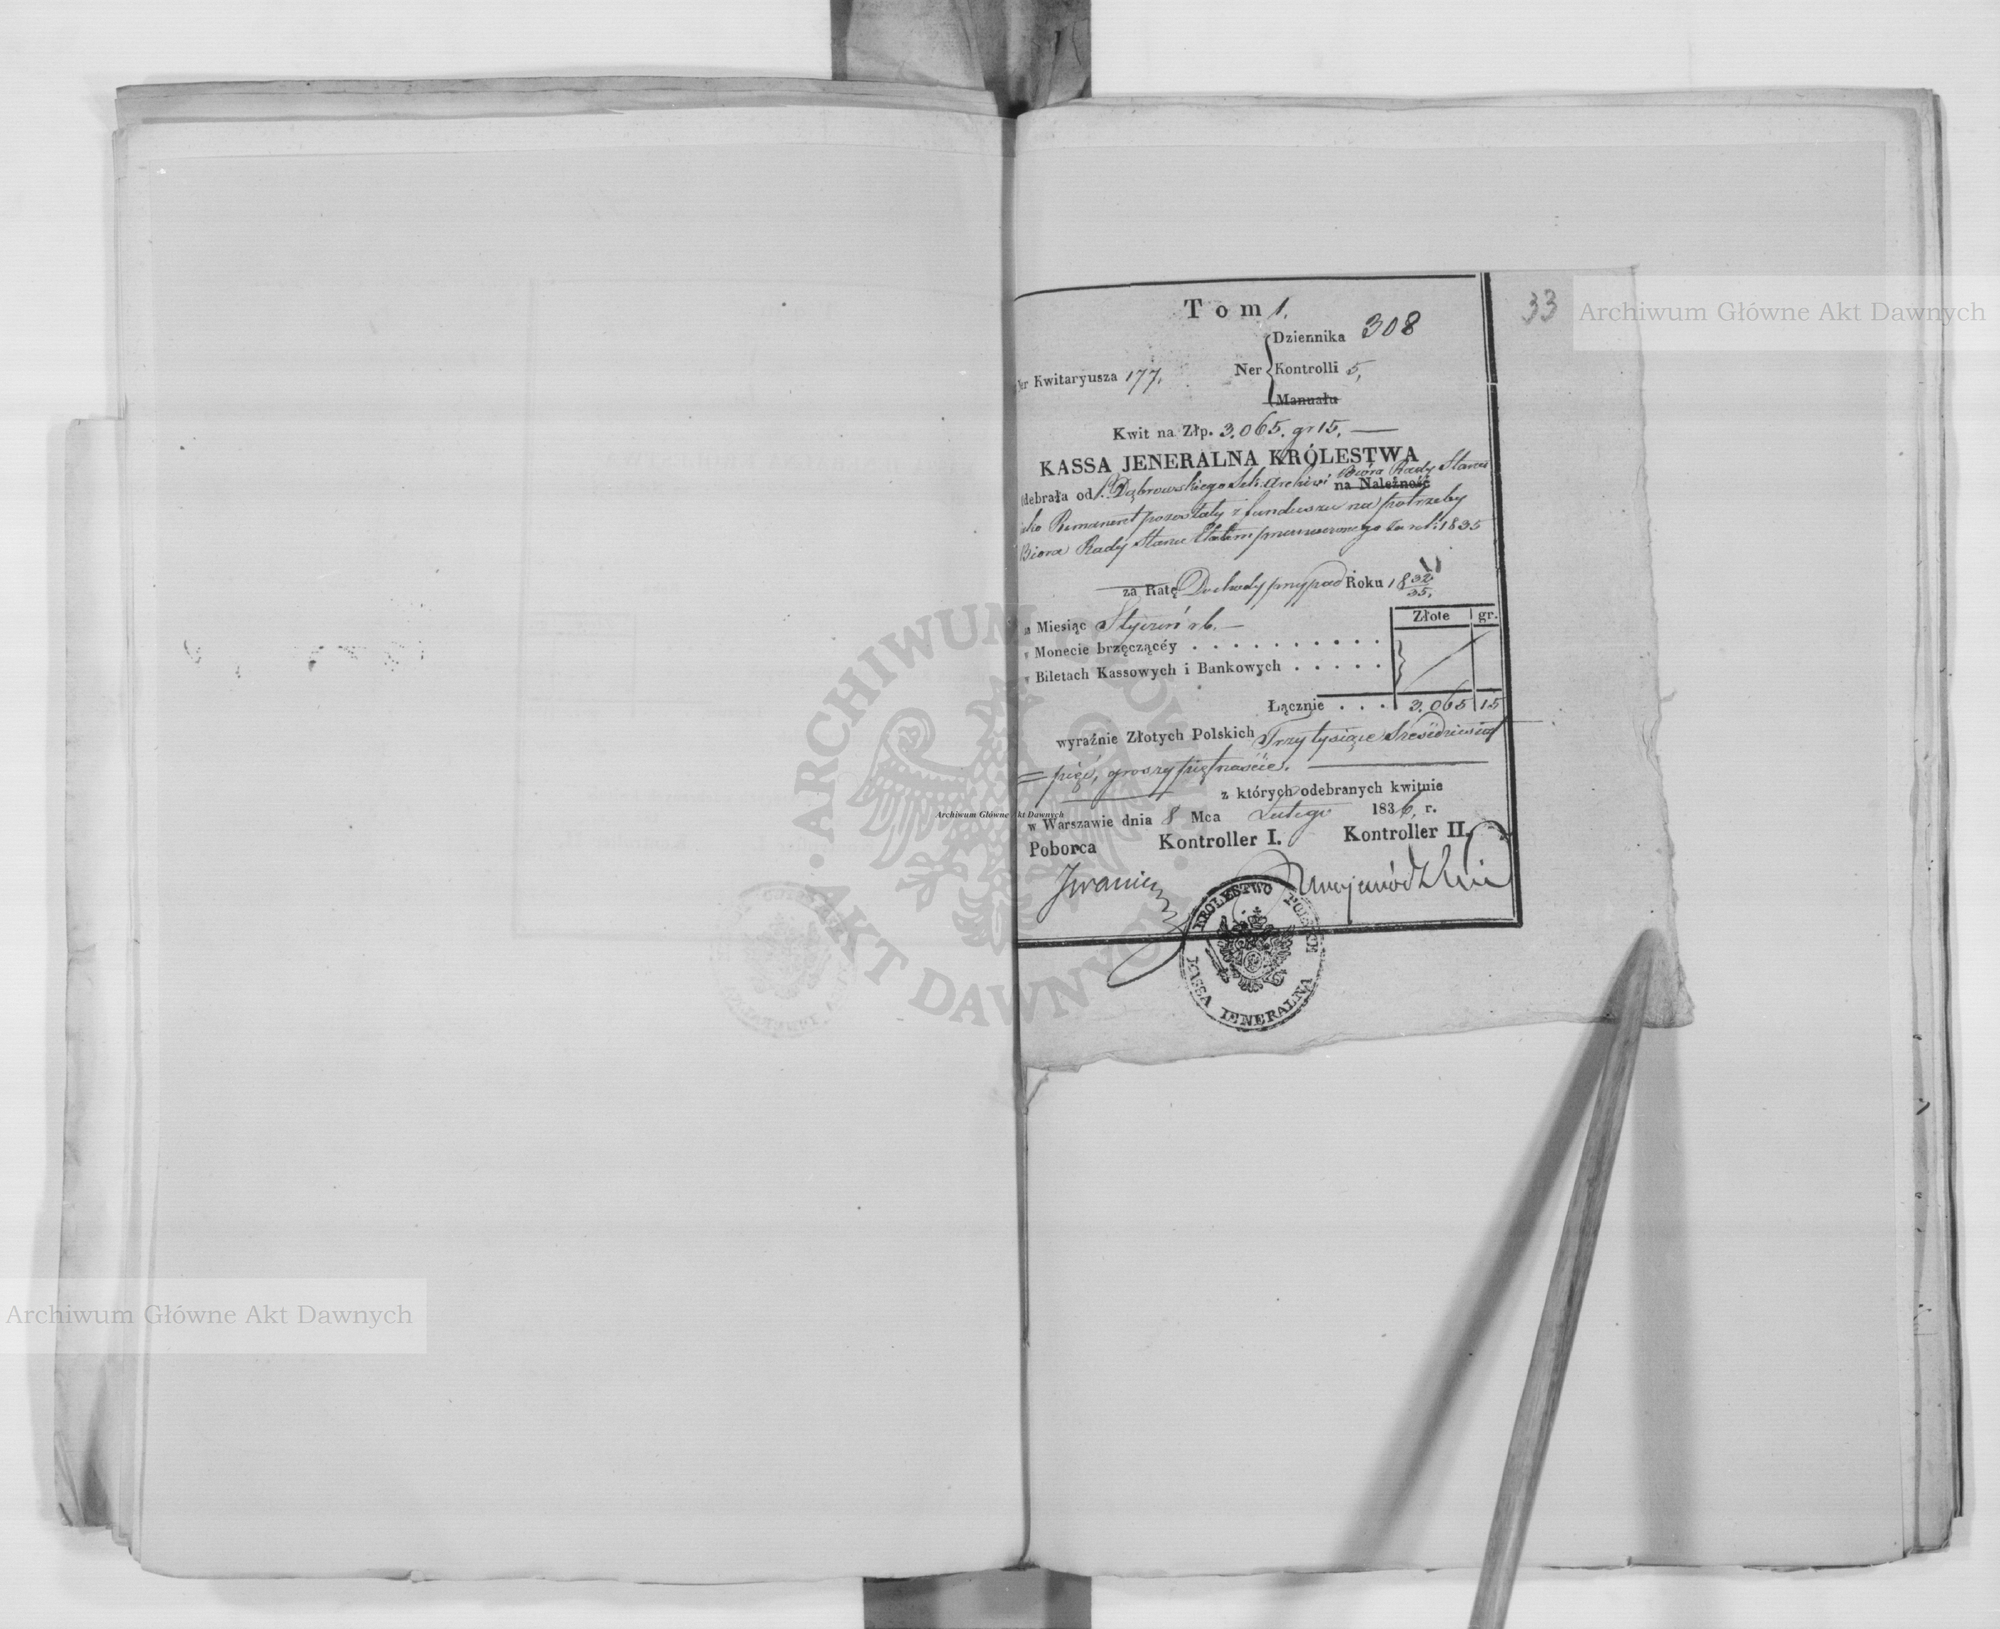 33
Archiwum Główne Akt Dawnych
Tom 1.
Dziennika 308
Ner Kwitaryusza 177.
Ner Kontrolli 5,
Manuału
Kwit na Złp. 3.065. gr 15.
KASSA JENERALNA KRÓLESTWA
debrała od Dąbrowskiego Sek: Archiwi Bióra Rady Stanu
na Należność
jako Remanent pozostały z funduszu na potrzeby
Biora Rady Stanu 1835
za Ratę Dochody przypad Roku 18 32/35.
Miesiąc Styczeń r b.
Złote gr.
w Monecie brzęczącéy . . . . . . . . . .
w Biletach Kassowych i Bankowych . . . . .
Łącznie . . . 3.065 15
wyraźnie Złotych Polskich Trzy tysiące sześćdziesiąt
pięć, groszy piętnaście.
z których odebranych kwituie
w Warszawie dnia 8 Mca Lutego 1836, r.
Poborca Kontroller I. Kontroller II.
KRÓLESTWO POLSKIE
KASSA IENERALNA
ARCHIWUM GŁÓWNE AKT DAWNYCH
Archiwum Główne Akt Dawnych
Archiwum Główne Akt Dawnych